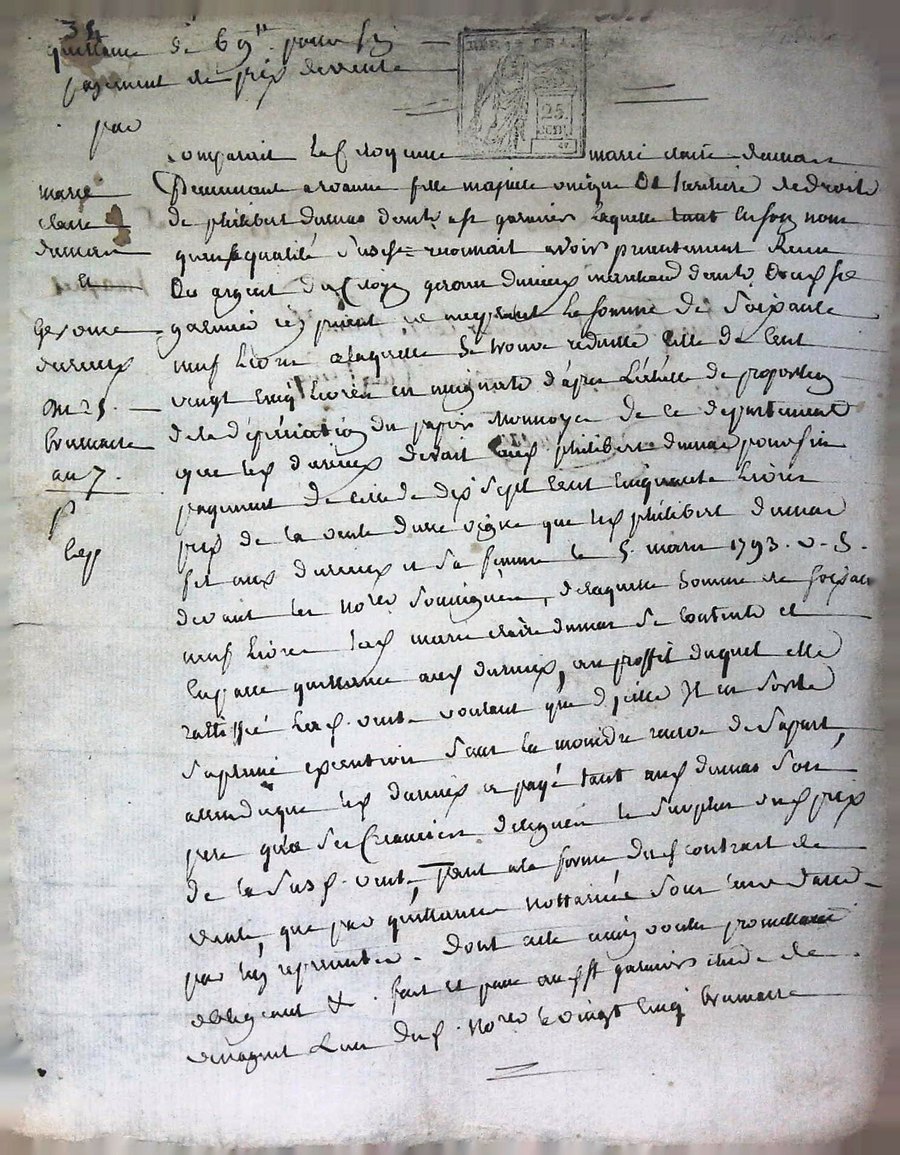 34
quittance de 69ₗₜ pour fin
payement de prix de vente
par
REP. FRA.
25
CEN.
marie
claire
dumas
a
Gerome
durieux
Du 25.
brumaire
an 7.
comparait la Citoyenne marie claire dumas
Demeurant a roanne fille majeure unique et heritiere de droit
de philibert dumas de st garnier laquelle tant en son nom
qu'en sa qualité susd. reconnait avoir presentement Reçu
En argent du Citoyen gerome durieux marchand
garnier icy présent et acceptant la somme de soixante
neuf Livres a laquelle se trouve reduitte celle de Cent
vingt Cinq Livres en assignats d'après L'échelle de proportion
de la dépréciation du papier Monnoye de ce departement
que led. durieux devait aud. philibert dumas pour fin
payement de celle de dix sept Cent Cinquante Livres
prix de la vente d'une vigne que led. philibert dumas
fit aud. durieux et sa femme le 5. mars 1793. v. s.
devant les No.res soussignés, de laquelle somme de soixante
neuf Livres lad. marie claire dumas se contente et
En passe quittance aud. durieux, au proffit duquel elle
rattiffie lad. vente voulant que d'icelle Il en sorte
sa pleine execution sans la moindre reserve de sa part,
attendu que led. durieux a payé tant aud. dumas son
pere qu'a ses Creanciers delegués le surplus dud. prix
de la susd. vente, tant a la forme dud. contrat de
vente, que par quittances nottariées sous leurs dattes
par luy representées. Dont acte ainsy voulu promettant
obligeant &. fait et passé aud. st garnier etude de
demagnit L'un desd. No.res le vingt Cinq brumaire